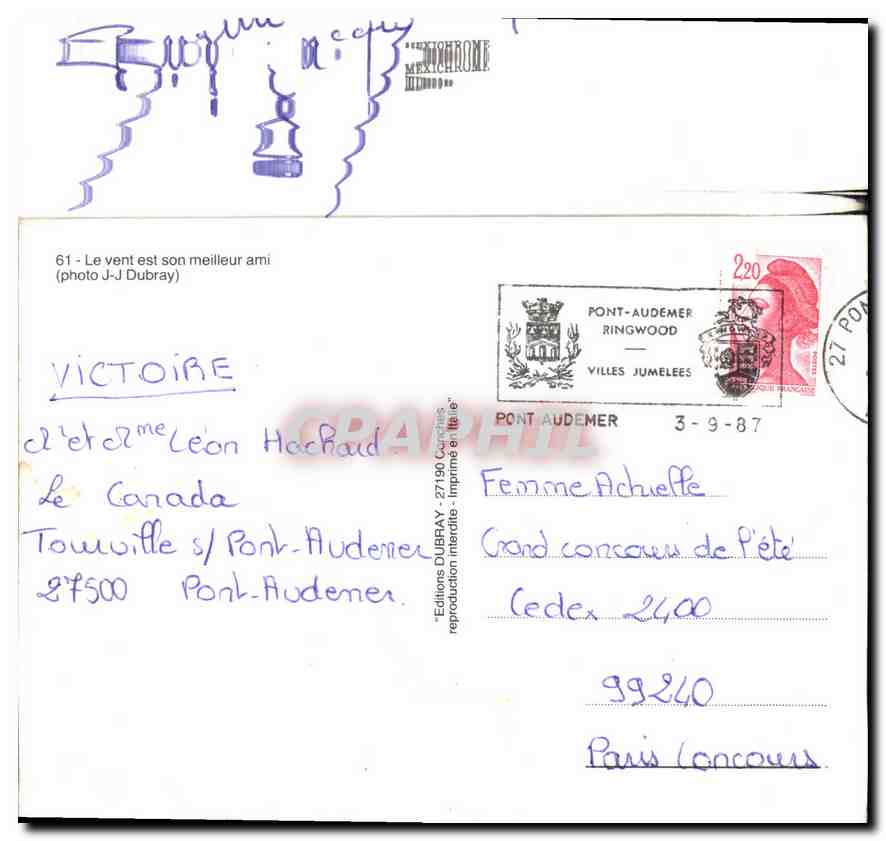 MEXICHROME
61 - Le vent est son meilleur ami
(photo J-J Dubray)
2,20
PONT-AUDEMER
RINGWOOD
VILLES JUMELEES
POSTES
PONT AUDEMER 3-9-87
27 PON
VICTOIRE
Mr et Mme Léon Hachard
Le Canada
Tourville s/ Pont-Audemer
27500 Pont-Audemer.
"Editions DUBRAY - 27190 Conches
reproduction interdite - Imprimé en Italie"
CPAPHIL
Femme Actuelle
Grand concours de l'été
Cedex 2400
99240
Paris Concours